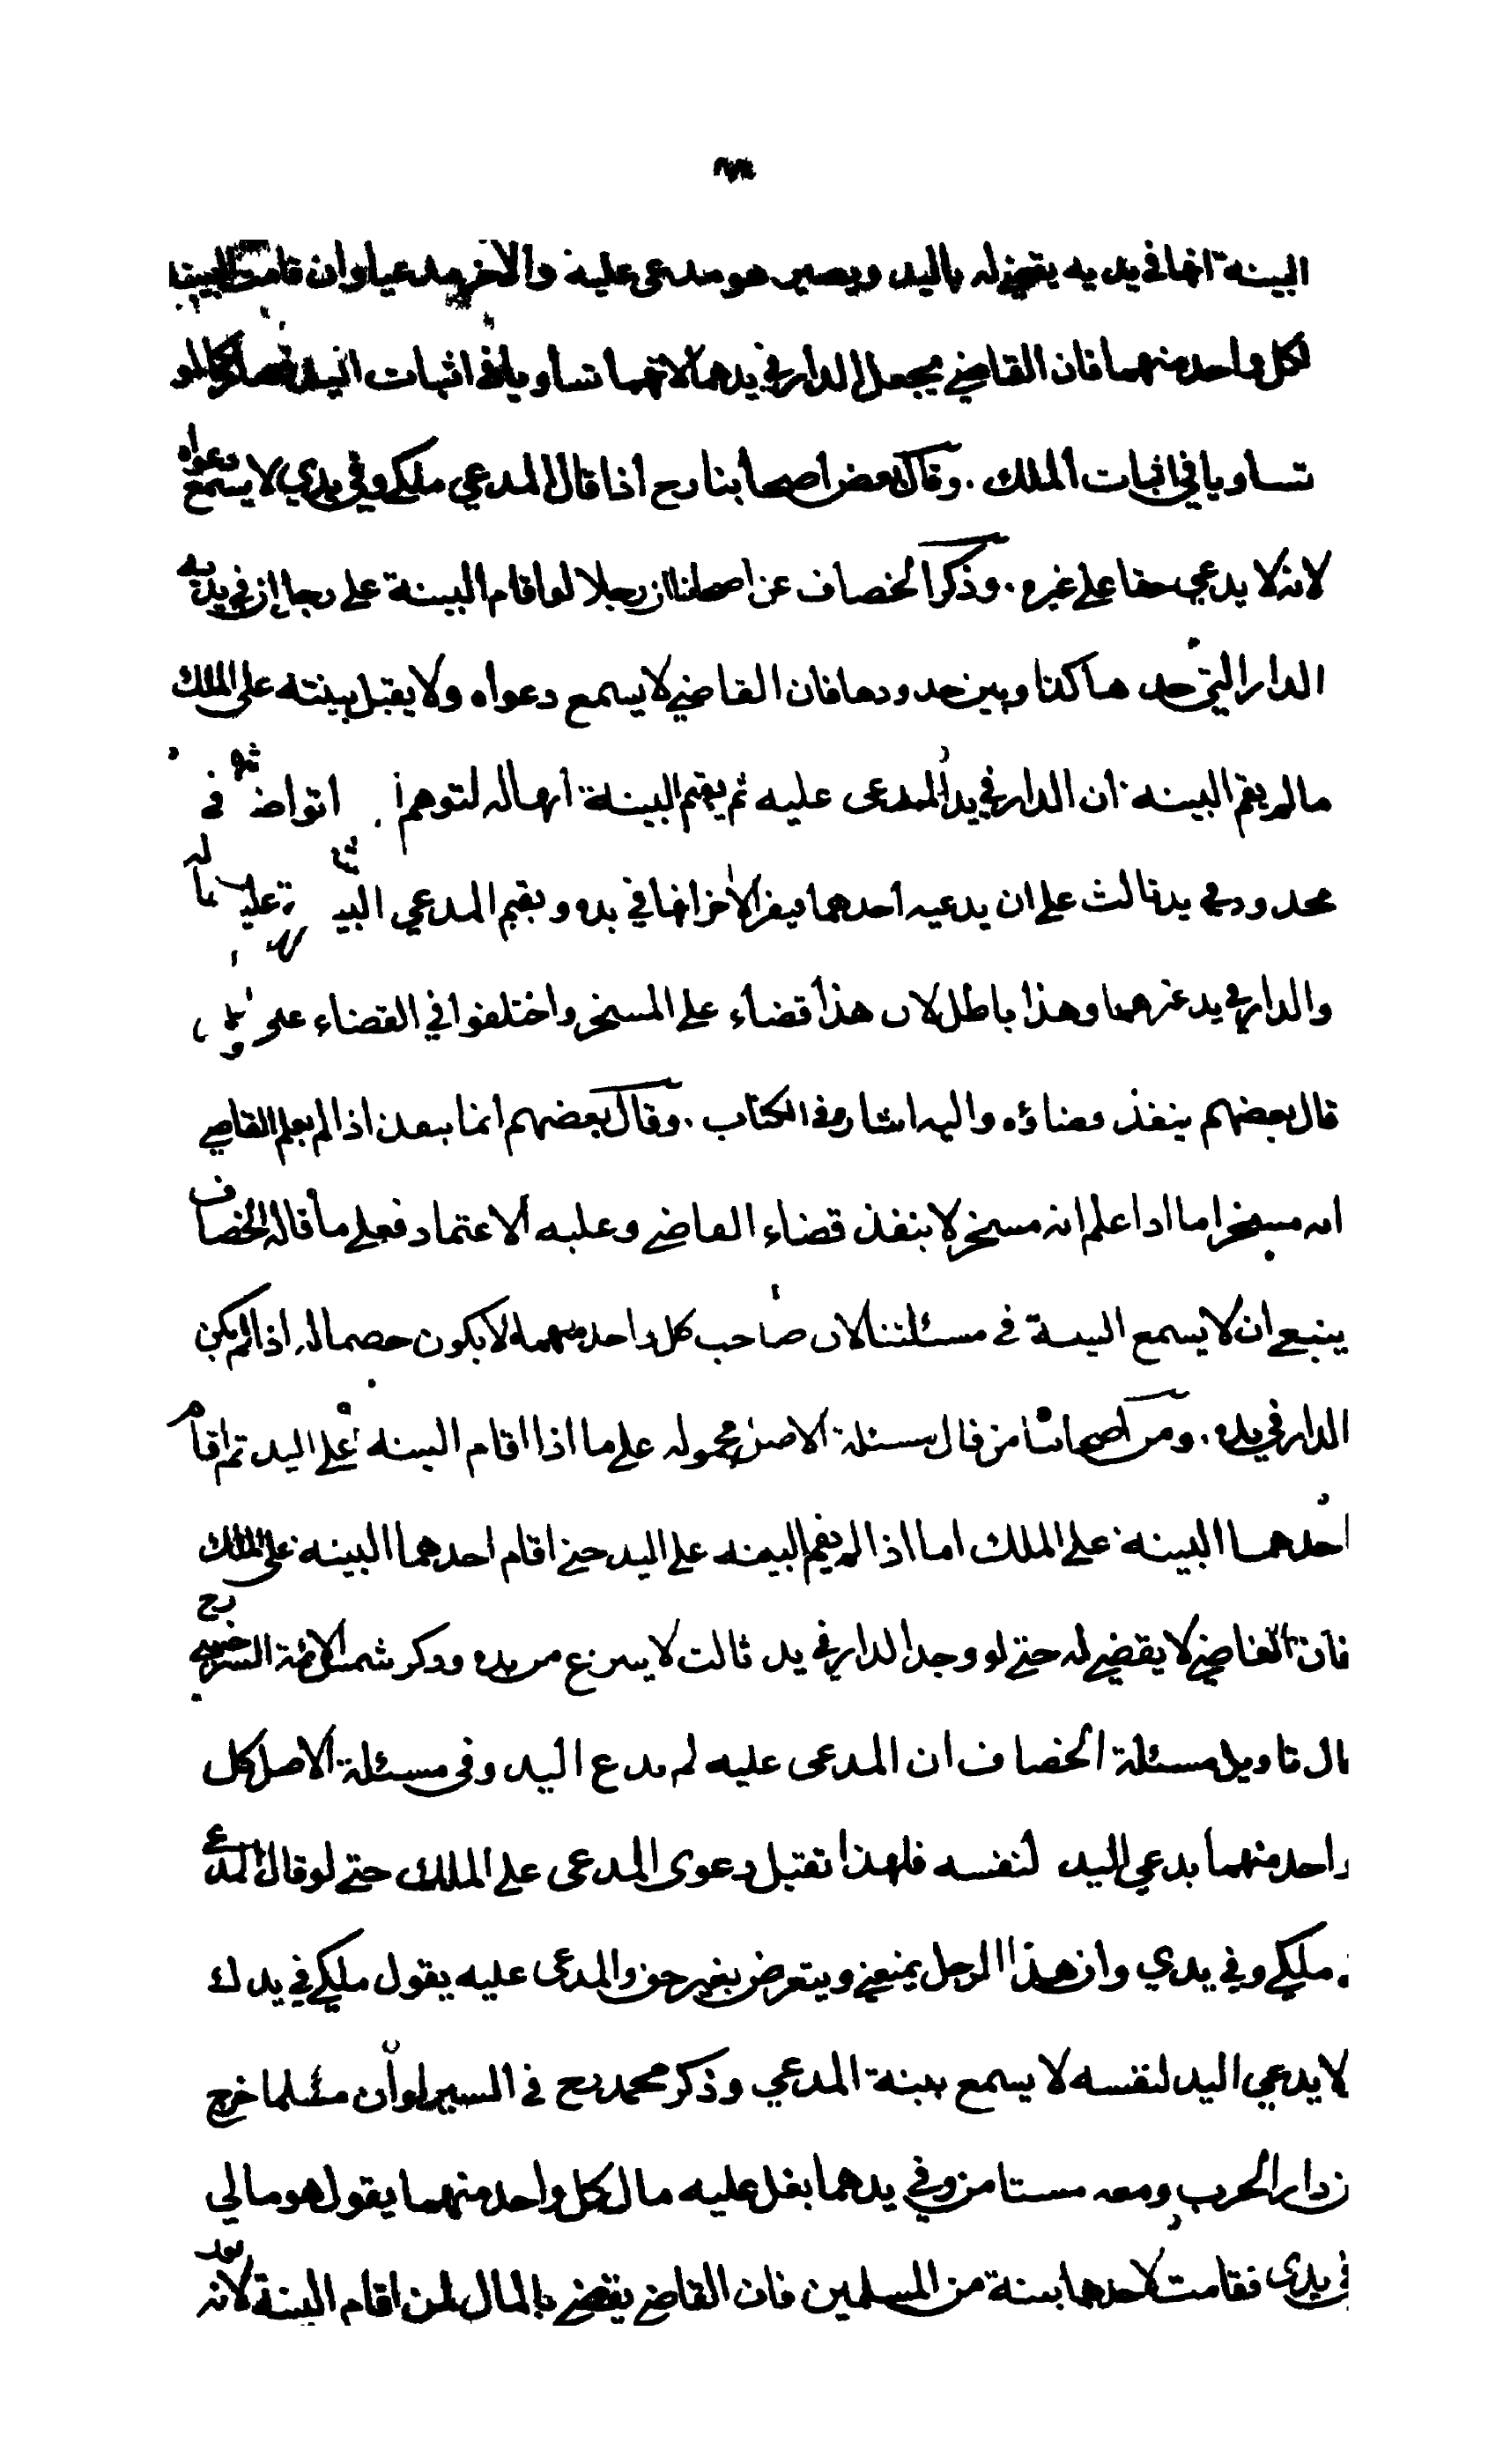 البينة انها في يديه يقضى له باليد ويصير هو مدعى عليه والاخر مدعيا وان قامت البينة
لكل واحد منهما فان القاضي يجعل الدار في يدهما لانهما تساويا في اثبات اليد فصار كما لو
تساويا في اثبات الملك . وقال بعض اصحابنا رح اذا قال المدعي ملكي وفي يدي لا يسمع دعواه
لانه لا يدعي حقا على غيره . وذكر الخصاف عن اصحابنا ان رجلا لو اقام البينة على رجل ان في يديه
الدار التي حدها كذا وبين حدودها فان القاضي لا يسمع دعواه ولا يقبل بينته على الملك
مالم يقم البينه ان الدار في يد المدعى عليه ثم يقيم البينة انها له لتوهم انهما تواضعا في
محدود في يد ثالث على ان يدعيه احدهما ويقر الاخر انها في يده و يقيم المدعي البينة عليه
والدار في يد غيرهما وهذا باطل لان هذا قضاء على المسخر واختلفوا في القضاء على
قال بعضهم ينفذ قضاؤه واليه اشار في الكتاب . وقال بعضهم انما ينفذ اذا لم يعلم القاضي
انه مسخر اما اذا علم انه مسخر لا ينفذ قضاء القاضي وعليه الاعتماد فعلى ما قاله الخصاف
ينبغي ان لا يسمع البينة في مسئلتنا لان صاحب كل واحد منهما لا يكون خصما له اذا لم يكن
الدار في يده . ومن اصحابنا من قال مسئلة الاصل محموله على ما اذا اقام البينه على اليد ثم اقام
احدهما البينه على الملك اما اذا لم يقم البينه على اليد حتى اقام احدهما البينه على الملك
فان القاضي لا يقضي له حتى لو وجد الدار في يد ثالث لا ينزع من يده وذكر شمس الائمة السرخسي رح
ان تاويل مسئلة الخصاف ان المدعى عليه لم يدع اليد وفي مسئلة الاصل كل
واحد منهما يدعي اليد لنفسه فلهذا تقبل دعوى المدعى على الملك حتى لو قال المدعي
ملكي وفي يدي وان هذا الرجل يمنعني ويتعرض بغير حق والمدعى عليه يقول ملكي في يدك
لا يدعي اليد لنفسه لا يسمع بينة المدعي وذكر محمد رح في السير لو ان مسلما خرج
من دار الحرب ومعه مستامن وفي يدهما بغل عليه مال كل واحد منهما يقول هو مالي
في يدي فقامت لاحدهما بينة من المسلمين فان القاضي يقضي بالمال لمن اقام البينة لانه نور